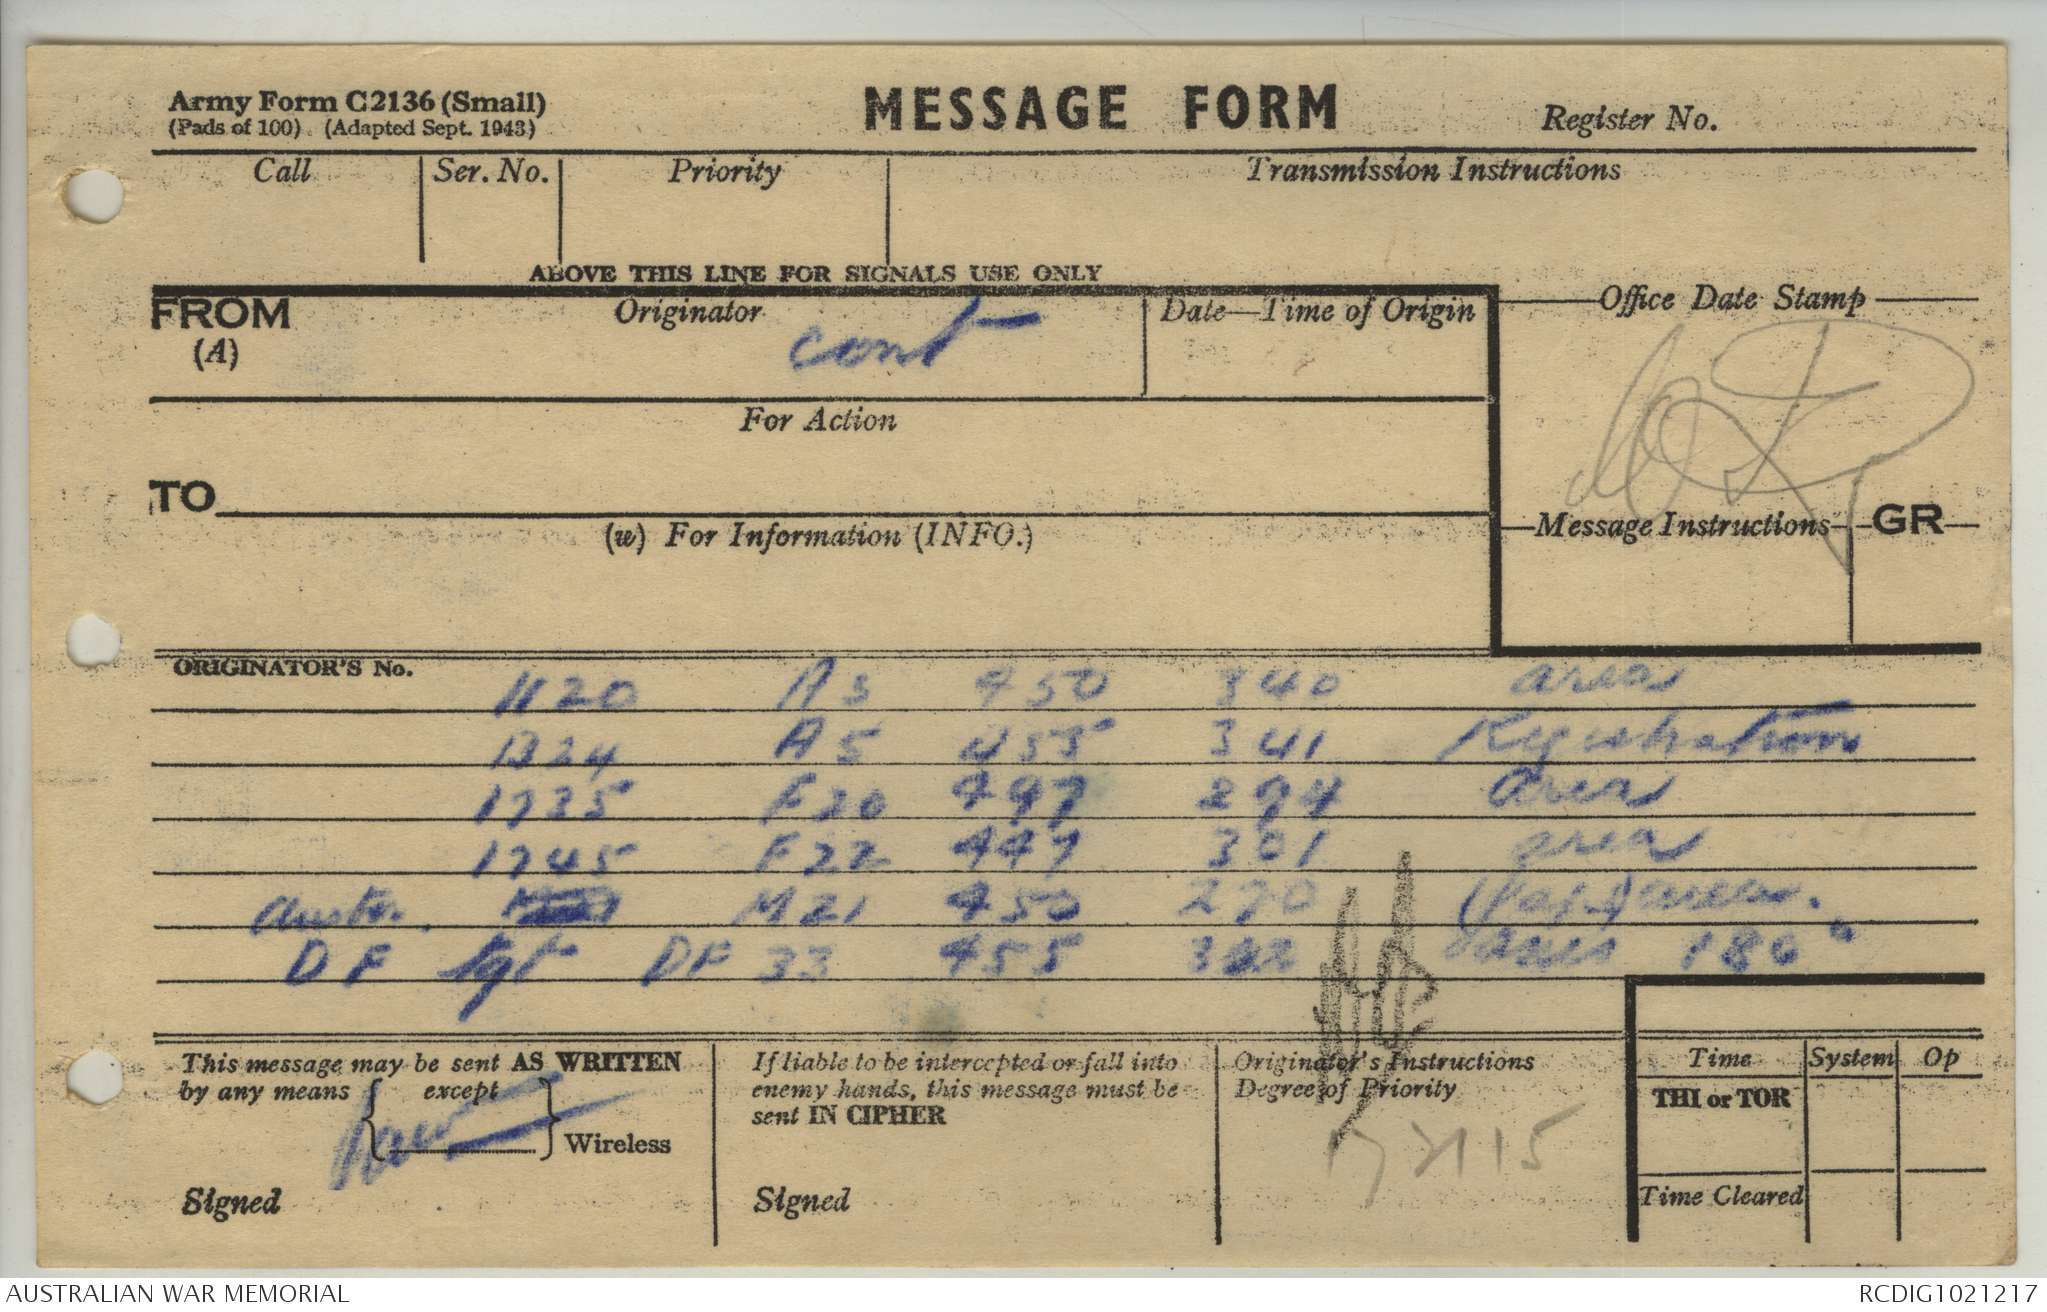 Army Form C2136 (Small)
(Pads of 100) (Adapted Sept. 1943)
MESSAGE FORM
Register No.
Call Ser. No. Priority Transmission Instructions
ABOVE THIS LINE FOR SIGNALS USE ONLY
FROM (A) Originator cont Date—Time of Origin Office Date Stamp
For Action
TO
(w) For Information (INFO.) Message Instructions GR
ORIGINATOR'S No.
1120 A3 450 340 area
1324 A5 455 341 Registration
1735 F20 447 294 area
1745 F22 447 301 area
M21 450 270 area.
DF tgt DF 33 455 axis 180°
This message may be sent AS WRITTEN
by any means except
Wireless
Signed
If liable to be intercepted or fall into
enemy hands, this message must be
sent IN CIPHER
Signed
Originator's Instructions
Degree of Priority
Time System Op
THI or TOR
Time Cleared
AUSTRALIAN WAR MEMORIAL RCDIG1021217